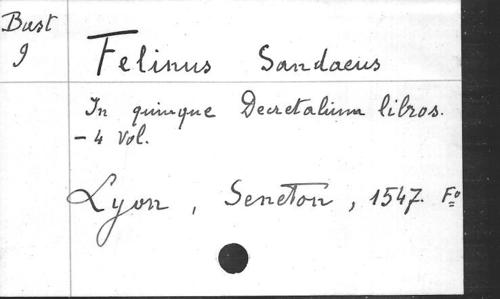 Bast
9
Felinus Sandaeus
In quinque Decretalium libros.
- 4 vol.
Lyon, Seneton, 1547. Fº